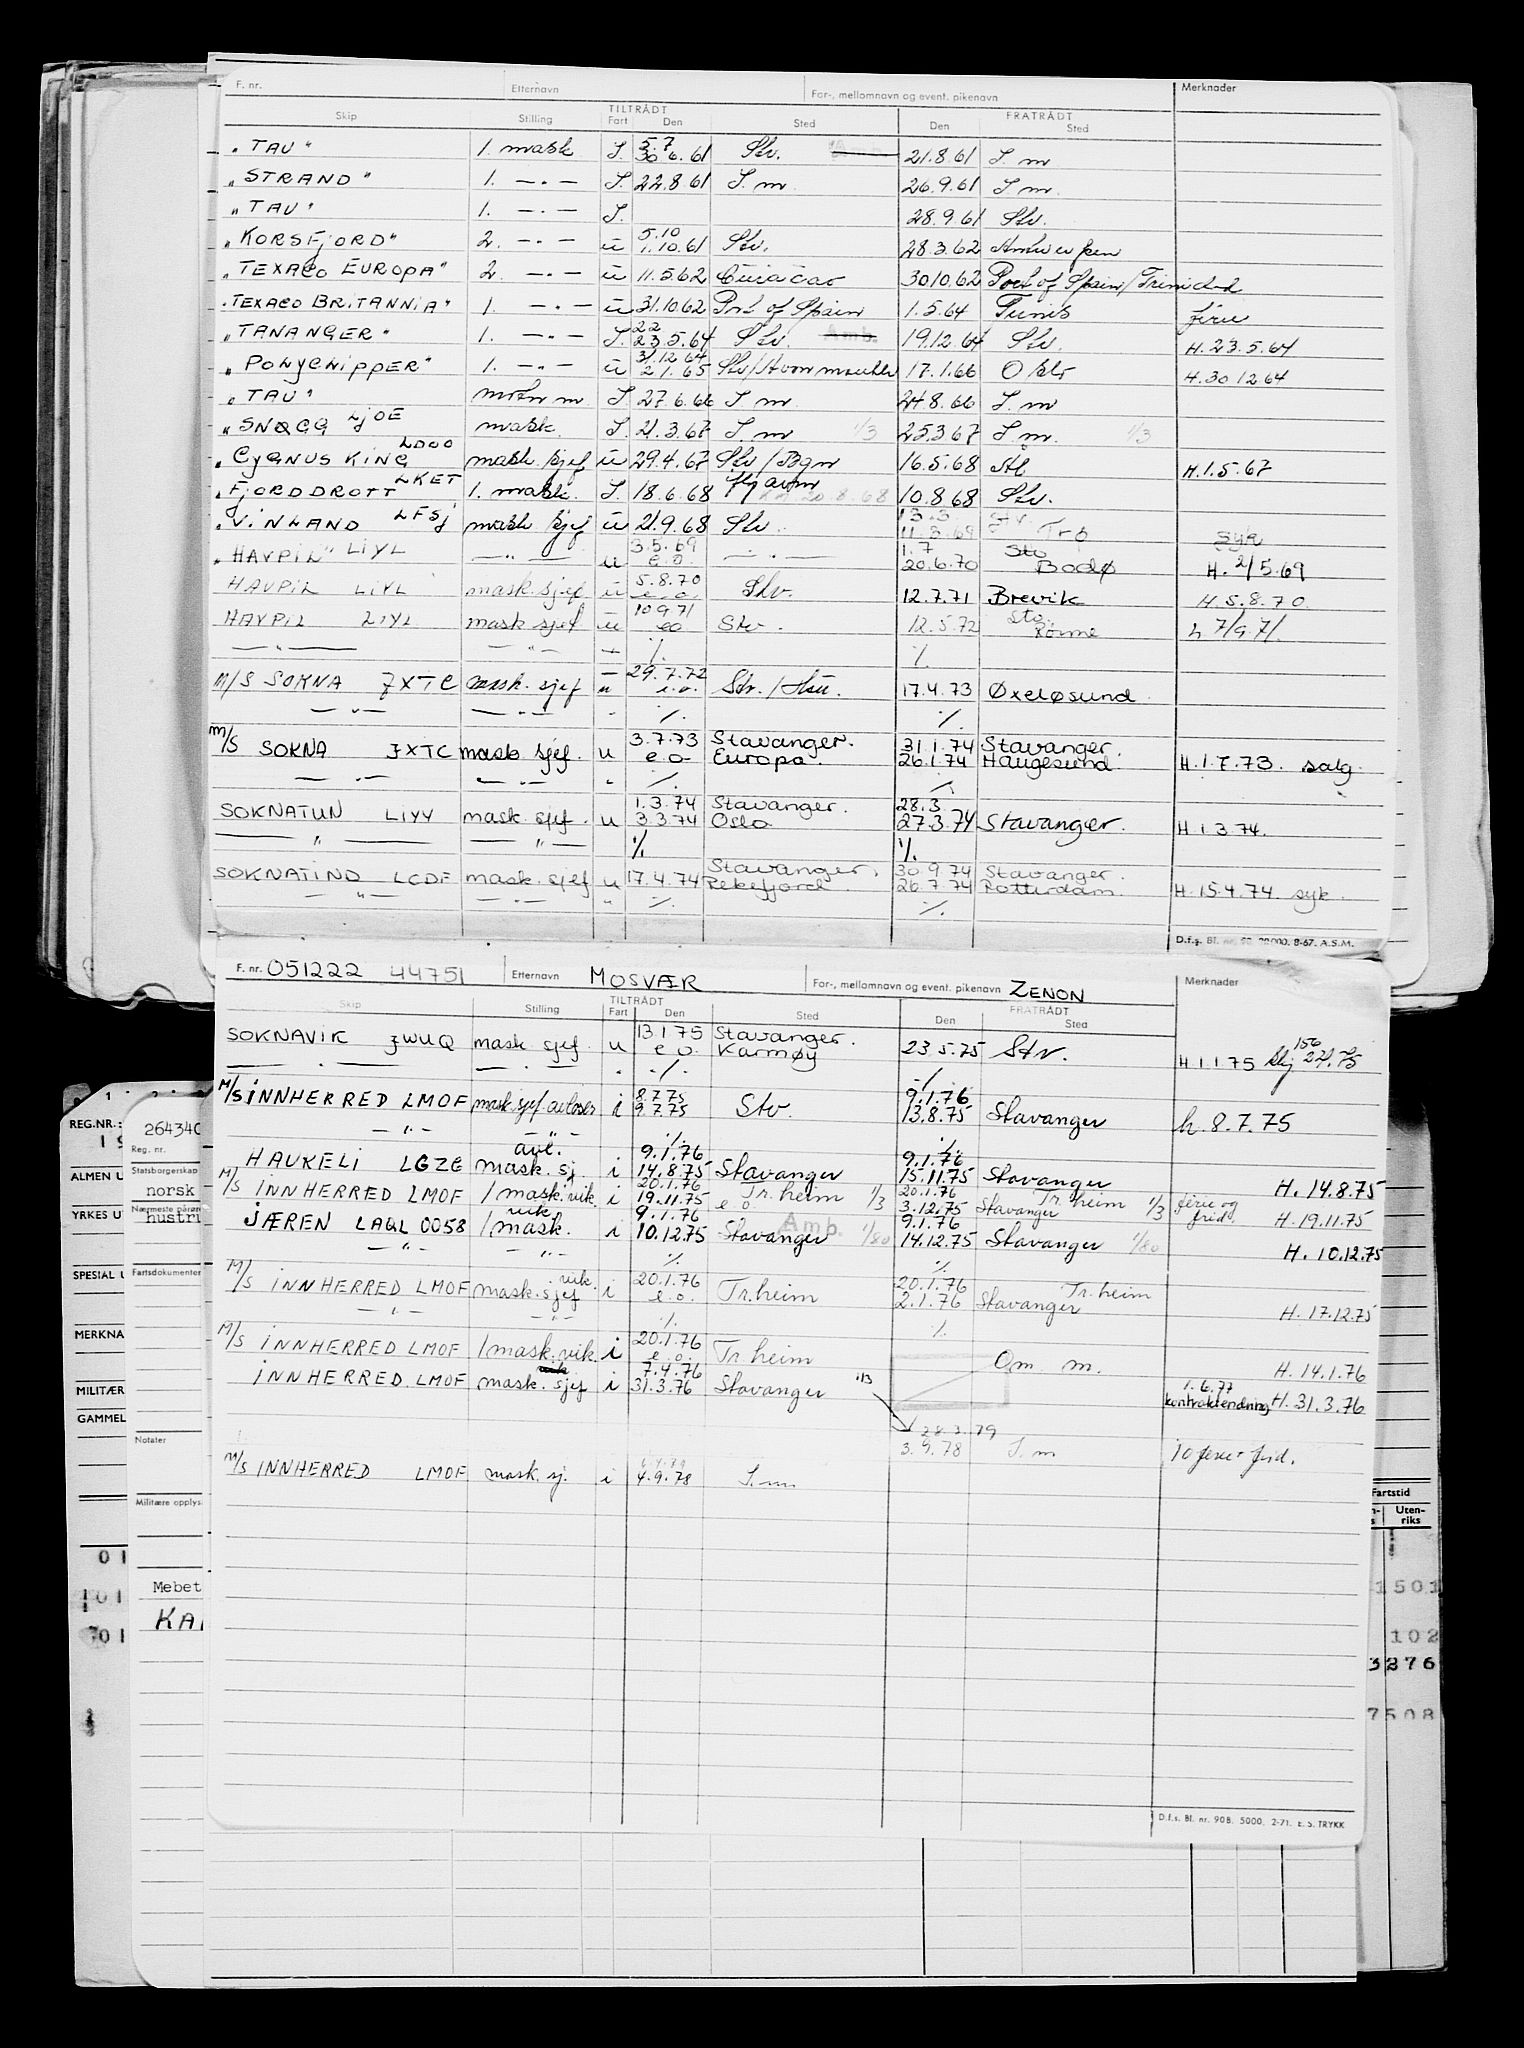 F. nr. Etternavn For-, mellomnavn og event. pikenavn Merknader
TILTRÅDT FRATRÅDT
Skip Stilling Fart Den Sted Den Sted
"TAU" 1. mask I. 5.7 30.6.61 Stv. Amb. 21.8.61 I. m
"STRAND" 1. -"- I. 22.8.61 I. m. 26.9.61 I m.
"TAU" 1. -"- I. 28.9.61 Stv.
"KORSFJORD" 2. -"- u 5.10 1.10.61 Stv. 28.3.62 Antwerpen
"TEXACO EUROPA" 2. -"- u 11.5.62 Curacao 30.10.62 Port of Spain/Trinidad
"TEXACO BRITANNIA" 1. -"- u 31.10.62 Port of Spain 1.5.64 Tunis ferie
"TANANGER" 1. -"- I. 22 23.5.64 Stv. Amb. 19.12.64 Stv. H.23.5.64
"POLYCLIPPER" 1. -"- u 31.12.64 2.1.65 Stv/Avonmouth 17.1.66 H.30.12.64
"TAU" I. 27.6.66 I m 24.8.66 I. m
"SNØGG LJOE mask. I. 21.3.67 I m 1/3 25.3.67 I m. 1/3
"CYGNUS KING LDOO mask. sjef u 29.4.67 Stv/Bgn 16.5.68 H.1.5.67
"FJORDDROTT LKET 1. mask. I. 18.6.68 20.8.68 10.8.68 Stv.
"VINLAND LFSJ mask sjef u 21.9.68 Stv. 13.3 11.3.69 Stv. Trø syk
"HAVPIL" LIYL -"- u 3.5.69 e.o. -"- 1.7 20.6.70 Stv Bodø H. 2/5.69
HAVPIL LIYL mask. sjef u 5.8.70 e.o. Stv. 12.7.71 Brevik H.5.8.70
HAVPIL LIYL mask sjef u 10.9.71 eo Stv. 12.5.72 Stv. Rønne h 7/9.71.
-"- -"- ./. ./.
M/S SOKNA JXTC mask. sjef u 29.7.72 e.o. Stv./Hsu. 17.4.73 Øxeløsund
-"- -"- ./. ./.
M/S SOKNA JXTC mask sjef. u 3.7.73 e o Stavanger. Europa. 31.1.74 26.1.74 Stavanger. Haugesund. H.1.7.73. salg.
-"- -"- ./. ./.
SOKNATUN LIYY mask. sjef. u 1.3.74 3.3.74 Stavanger. Oslo 28.3 27.3.74 Stavanger. H 1.3.74.
-"- -"- ./. ./.
SOKNATIND LCDF mask. sjef u 17.4.74 Stavanger. Rekefjord. 30.9.74 26.7.74 Stavanger. Rotterdam. H.15.4.74. syk.
-"- -"- " ./. ./.
D.f.s. Bl. nr. 90. 20000. 8-67. A.S.M.
F. nr. 051222 44751 Etternavn MOSVÆR For-, mellomnavn og event. pikenavn ZENON Merknader
TILTRÅDT FRATRÅDT
Skip Stilling Fart Den Sted Den Sted
SOKNAVIK JWUQ mask. sjef. u 13.1.75 e o. Stavanger. Karmøy 23.5.75 Stv. H.1.1.75
-"- -"- ./. ./.
M/S INNHERRED LMOF mask.sjef avløser i 8.7.75 9.7.75 Stv. 9.1.76 13.8.75 Stavanger h. 8.7.75
-"- -"- ./. ./.
HAUKELI LGZG avl. mask. sj. i 9.1.76 14.8.75 Stavanger 9.1.76 15.11.75 Stavanger H. 14.8.75
M/S INNHERRED LMOF 1 mask. vik. i 20.1.76 19.11.75 Tr.heim e o. 1/3 20.1.76 3.12.75 Tr heim Stavanger 1/3 ferie og frid. H.19.11.75
JÆREN LAQL 0058 vik. 1 mask. i 9.1.76 10.12.75 Stavanger Amb. 1/80 9.1.76 14.12.75 Stavanger 1/80 H. 10.12.75
-"- -"- ./. ./.
M/S INNHERRED LMOF vik. mask. sjef i 20.1.76 e.o. Tr.heim 20.1.76 2.1.76 Tr.heim Stavanger H.17.12.75
-"- -"- ./. ./.
M/S INNHERRED LMOF 1 mask. vik. i 20.1.76 e.o. Tr heim Om m. H. 14.1.76
INNHERRED LMOF mask. sjef i 7.4.76 31.3.76 Stavanger 1/3 1.6.77 kontraktendring H. 31.3.76
28.3.79 3.9.78 I. m
M/S INNHERRED LMOF mask. sj. i 4.9.78 I. m
D.f.s. Bl. nr. 90B. 5000. 2-71. E.S. TRYKK
REG.NR.:
ALMEN U
YRKES U
SPESIAL U
MERKNA
MILITÆR
GAMMEL
264340
Reg. nr.
Statsborgerskap
norsk
Nærmeste pårøre
hustru
Fartsdokumenter
Notater
Militære opplys
Mebet
KAR
Fartstid
Uten-
riks
1501
102
3276
7508